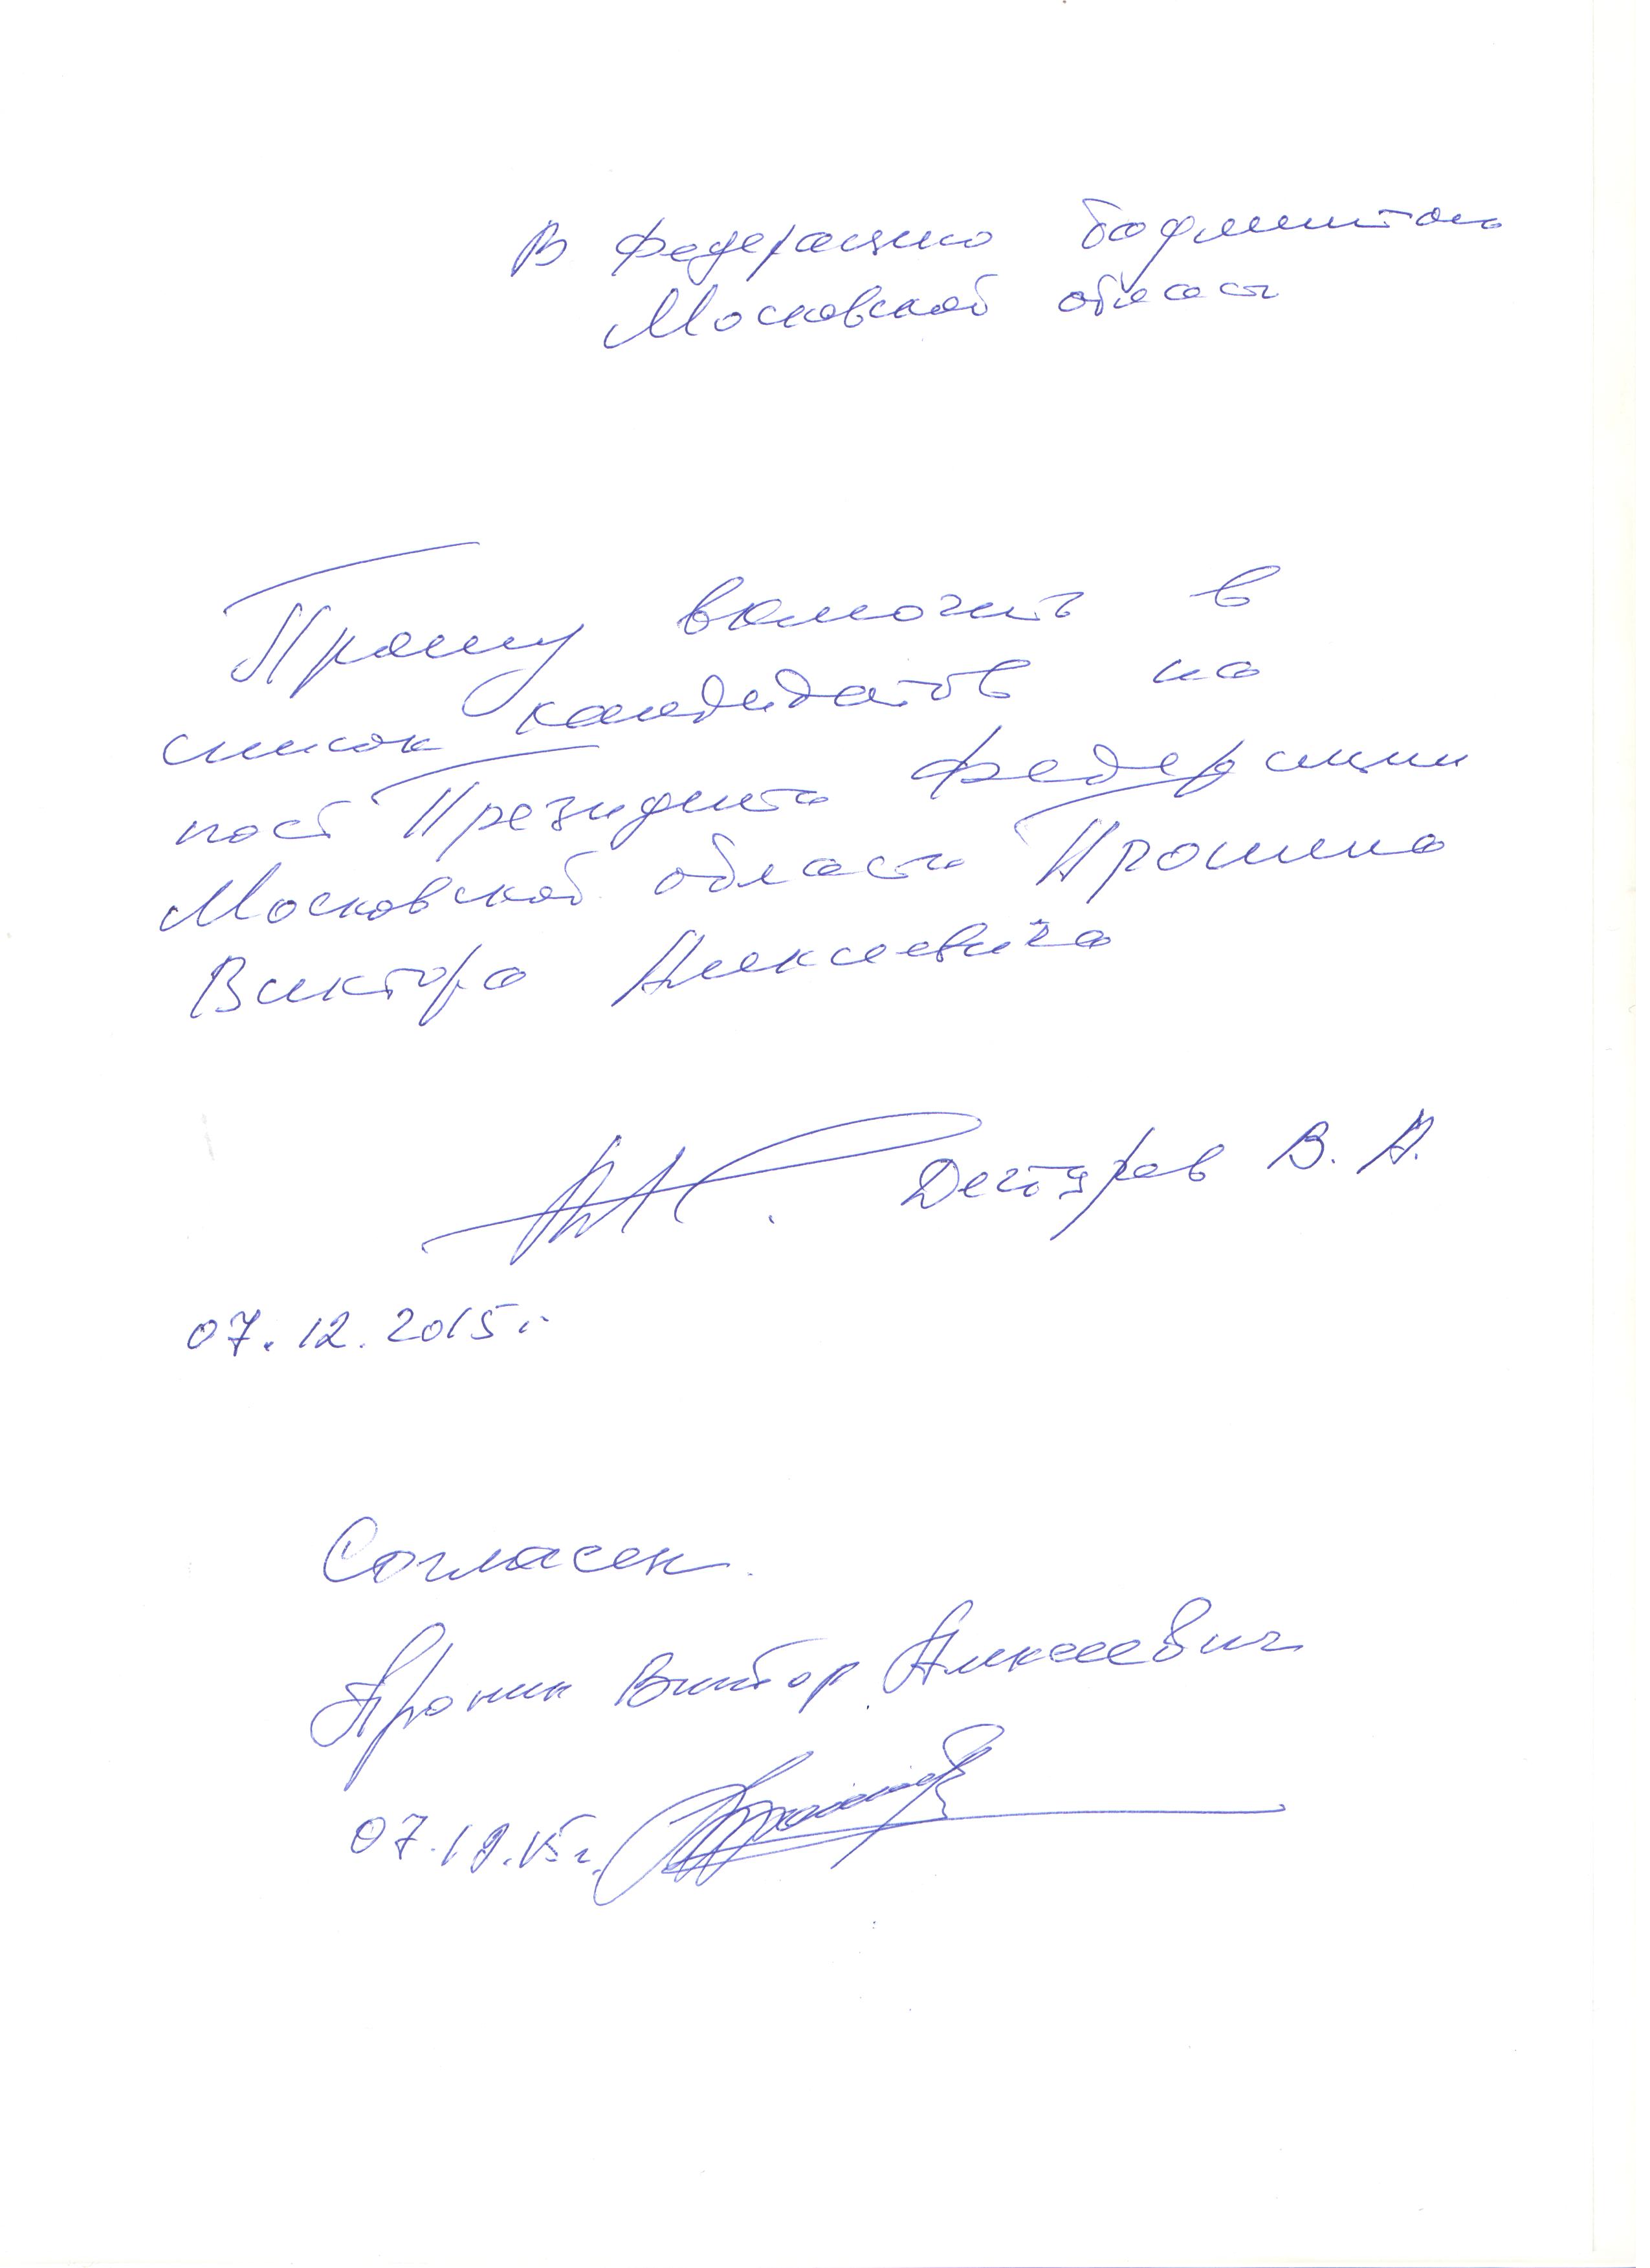 В Федерацию бадминтона
Московской области
Прошу включить в
список кандидатов на
пост Президента Федерации
Московской области Пронина
Виктора Алексеевича
Дегтярев В. А.
07.12.2015г.
Согласен.
Пронин Виктор Алексеевич
07.12.15г.